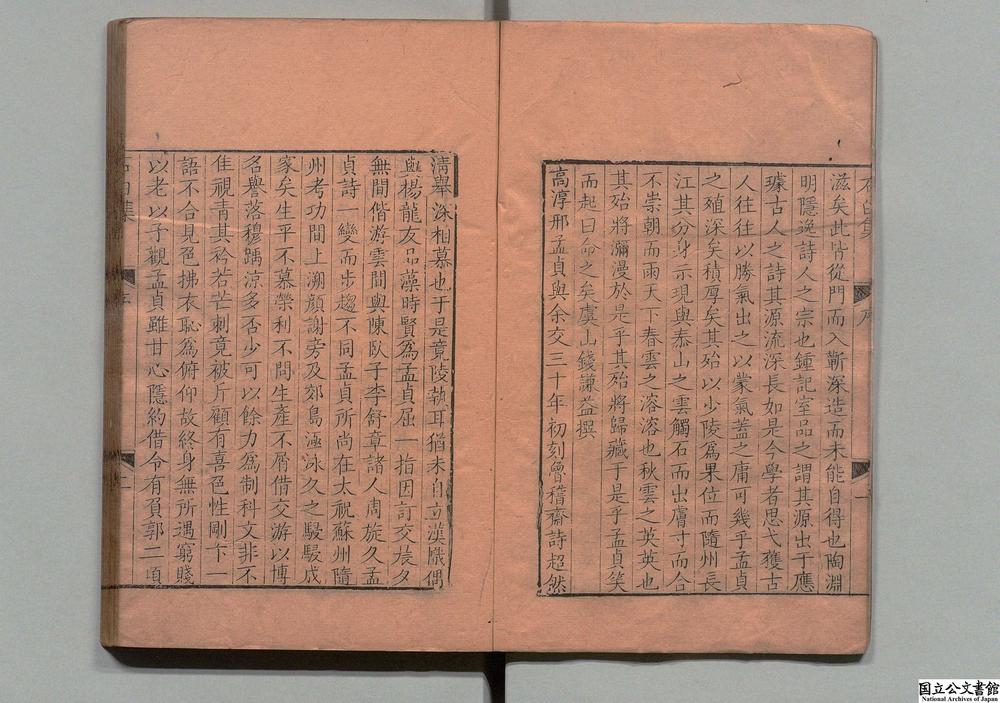 滋矣此皆從門而入靳深造而未能自得也陶淵
明隱逸詩人之宗也鍾記室品之謂其源出于應
璩古人之詩其源流深長如是今學者思弋獲古
人往往以勝氣出之以蒙氣蓋之庸可幾乎孟貞
之殖深矣積厚矣其殆以少陵爲果位而隨州長
江其分身示現與泰山之雲觸石而出膚寸而合
不崇朝而雨天下春雲之溶溶也秋雲之英英也
其殆將瀰漫於是乎其殆將歸藏于是乎孟貞笑
而起曰命之矣虞山錢謙益撰
高淳邢孟貞與余交三十年初刻魯稽齋詩超然
清舉深相慕也于是竟陵執耳猶未自立漢幟偶
與楊龍友品藻時賢爲孟貞屈一指因訂交晨夕
無間偕游雲間與陳臥子李舒章諸人周旋久孟
貞詩一變而步趨不同孟貞所尚在太祝蘇州隨
州考功間上溯顔謝旁及郊島涵泳久之駸駸成
家矣生平不慕榮利不問生產不屑借交游以博
名譽落穆踽涼多否少可以餘力爲制科文非不
隹視青其衿若芒刺竟被斥顧有喜色性剛卞一
語不合見色拂衣恥爲俯仰故終身無所遇窮賤
以老以予觀孟貞雖甘心隱約借令有負郭二頃